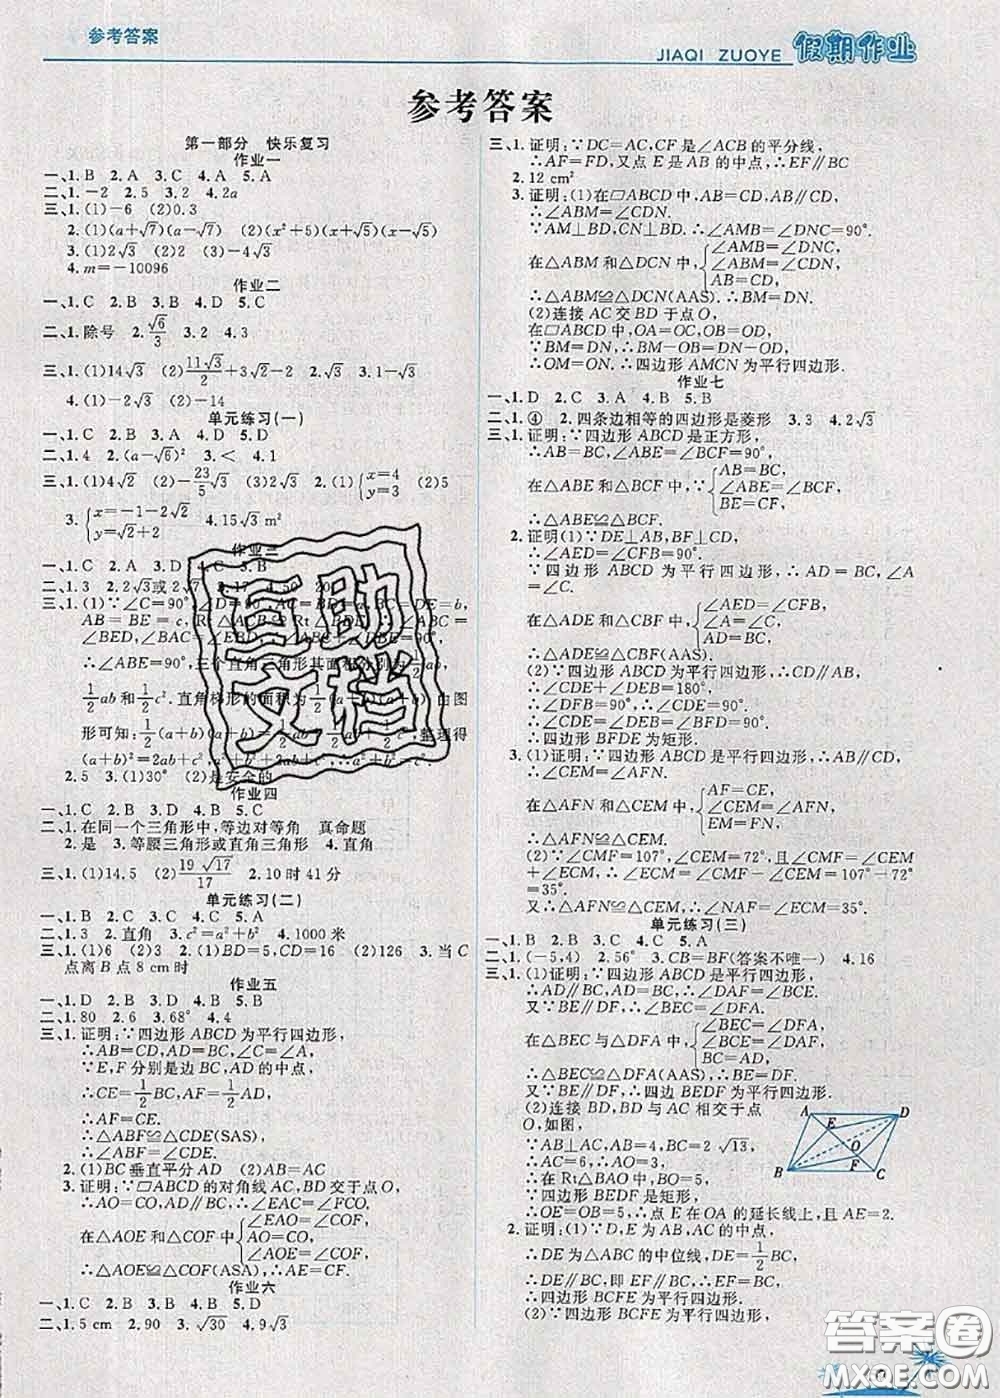 参考答案
JIAQI ZUOYE 假期作业
参考答案
第一部分 快乐复习
作业一
一、1. B 2. A 3. C 4. A 5. A
二、1. －2 2. 5 3. 2 4. 2a
三、1. (1)－6 (2)0.3
2. (1)(a＋√7)(a－√7) (2)(x²＋5)(x＋√5)(x－√5)
3. (1)2√3 (2)3 (3)－4√3
4. m＝－10096
作业二
一、1. C 2. B 3. B 4. D 5. C
二、1. 除号 2. √6/3 3. 2 4. 3
三、1. (1)14√3 (2)11√3/2＋3√2－2 2. √3 3. √3
4. (1)－2√3 (2)－14
单元练习(一)
一、1. C 2. B 3. A 4. D 5. D
二、1. 4 2. (a－√6)² 3. ＜ 4. 1
三、1. (1)4√2 (2)－23/5√3 2. (1){x＝4 y＝3 (2)5
3. {x＝－1－2√2 y＝√2＋2 4. 15√3 m²
作业三
2. 2√3或2√7
三、1. (1)∵∠C＝90°
AB＝BE＝c
∠BED，∠BAC＝∠EBD
∴∠ABE＝90°，三个直角三角形其面积分别为½ab，
½ab和½c². 直角梯形的面积为½(a＋b)(a＋b). 由图
形可知：½(a＋b)(a＋b)＝ 整理得
(a＋b)²＝2ab＋c²
2. 5 3. (1)30° (2)是安全的
作业四
一、1. C 2. B 3. D 4. B 5. C
二、1. 在同一个三角形中，等边对等角 真命题
2. 是 3. 等腰三角形或直角三角形 4. 直角
三、1. (1)14.5 (2)19√17/17 2. 10时41分
单元练习(二)
一、1. B 2. C 3. C 4. D 5. A
二、1. 3 2. 直角 3. c²＝a²＋b² 4. 1000米
三、1. (1)6 (2)3 2. (1)BD＝5，CD＝16 (2)126 3. 当C
点离B点8 cm时
作业五
一、1. D 2. D 3. B 4. C 5. B
二、1. 80 2. 6 3. 68° 4. 4
三、1. 证明：∵四边形ABCD为平行四边形，
∴AB＝CD，AD＝BC，∠C＝∠A.
∵E，F分别是边BC，AD的中点，
∴CE＝½BC，AF＝½AD，
∴AF＝CE.
∴△ABF≌△CDE(SAS)，
∴∠ABF＝∠CDE.
2. (1)BC垂直平分AD (2)AB＝AC
3. 证明：∵▱ABCD的对角线AC，BD交于点O，
∴AO＝CO，AD∥BC，∴∠EAC＝∠FCO，
在△AOE和△COF中{∠EAO＝∠FCO， AO＝CO， ∠AOE＝∠COF，
∴△AOE≌△COF(ASA)，∴OE＝OF.
作业六
一、1. C 2. B 3. A 4. B 5. D
二、1. 5 cm 2. 90 3. √30 4. 9√3
三、1. 证明：∵DC＝AC，CF是∠ACB的平分线，
∴AF＝FD，又点E是AB的中点，∴EF∥BC
2. 12 cm²
3. 证明：(1)在▱ABCD中，AB＝CD，AB∥CD，
∴∠ABM＝∠CDN.
∵AM⊥BD，CN⊥BD. ∴∠AMB＝∠DNC＝90°.
在△ABM和△DCN中，{∠ABM＝∠CDN， ∠AMB＝∠DNC， AB＝CD，
∴△ABM≌△DCN(AAS). ∴BM＝DN.
(2)连接AC交BD于点O，
在▱ABCD中，OA＝OC，OB＝OD，
∵BM＝DN，∴BM－OB＝DN－OD，
∴OM＝ON. ∴四边形AMCN为平行四边形.
作业七
一、1. D 2. C 3. A 4. B 5. B
二、1. ④ 2. 四条边相等的四边形是菱形 3. 3 4. 2√3
三、1. 证明：∵四边形ABCD是正方形，
∴AB＝BC，∠ABE＝∠BCF＝90°，
在△ABE和△BCF中，∵{AB＝BC， ∠ABE＝∠BCF， BE＝CF，
∴△ABE≌△BCF.
2. 证明：(1)∵DE⊥AB，BF⊥CD，
∴∠AED＝∠CFB＝90°.
∵四边形ABCD为平行四边形，∴AD＝BC，∠A
＝∠C，
在△ADE和△CBF中，{∠AED＝∠CFB， ∠A＝∠C， AD＝BC，
∴△ADE≌△CBF(AAS).
(2)∵四边形ABCD为平行四边形，∴CD∥AB，
∴∠CDE＋∠DEB＝180°，
∴∠CDE＝90°，
∴∠DFB＝90°，∴∠DEB＝90°，
∴四边形BFDE为矩形.
3. (1)证明：∵四边形ABCD是平行四边形，
∴∠CEM＝∠AFN.
在△AFN和△CEM中，{AF＝CE， ∠CEM＝∠AFN， EM＝FN，
∴△AFN≌△CEM.
(2)∵∠CMF＝107°，∠CEM＝72°，且∠CMF＝∠CEM
＋∠ECM，∴∠ECM＝∠CMF－∠CEM＝107°－72°
＝35°.
又∵△AFN≌△CEM，∴∠NAF＝∠ECM＝35°.
单元练习(三)
一、1. B 2. D 3. C 4. C 5. A
二、1. (－5,4) 2. 56° 3. CB＝BF(答案不唯一) 4. 16
三、1. (1)证明：∵四边形ABCD是平行四边形，
∴AD∥BC，AD＝BC，∴∠DAF＝∠BCE.
又∵BE∥DF，∴∠BEC＝∠DFA.
在△BEC与△DFA中，{∠BEC＝∠DFA， ∠BCE＝∠DAF， BC＝AD，
∴△BEC≌△DFA(AAS)，∴BE＝DF.
又∵BE∥DF，∴四边BEDF为平行四边形.
(2)连接BD，BD与AC相交于点
O，如图，
∵AB⊥AC，AB＝4，BC＝2√13，
∴AC＝6，∴AO＝3，
∴在Rt△BAO中，BO＝5，
∵四边形BEDF是矩形，
∴OE＝OB＝5，∴点E在OA的延长线上，且AE＝2.
A D E O B F C
2. 证明：(1)∵D，E为AB，AC的中点，
∴DE为△ABC的中位线，∴DE＝½BC，
∴DE∥BC，即EF∥BC，∴DE∥BC，
(2)∵四边形BCFE为平行四边形，
互助文档
答案圈
MXQE.COM